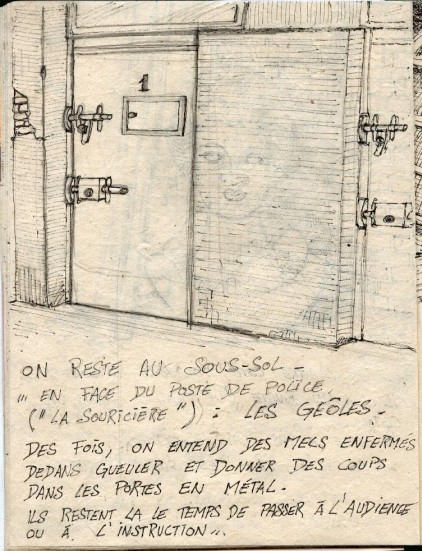 1
ON RESTE AU SOUS-SOL -
... EN FACE DU POSTE DE POLICE,
("LA SOURICIÈRE") : LES GEÔLES.
DES FOIS, ON ENTEND DES MECS ENFERMÉS
DEDANS GUEULER ET DONNER DES COUPS
DANS LES PORTES EN MÉTAL.
ILS RESTENT LA LE TEMPS DE PASSER À L'AUDIENCE
OU À L'INSTRUCTION...